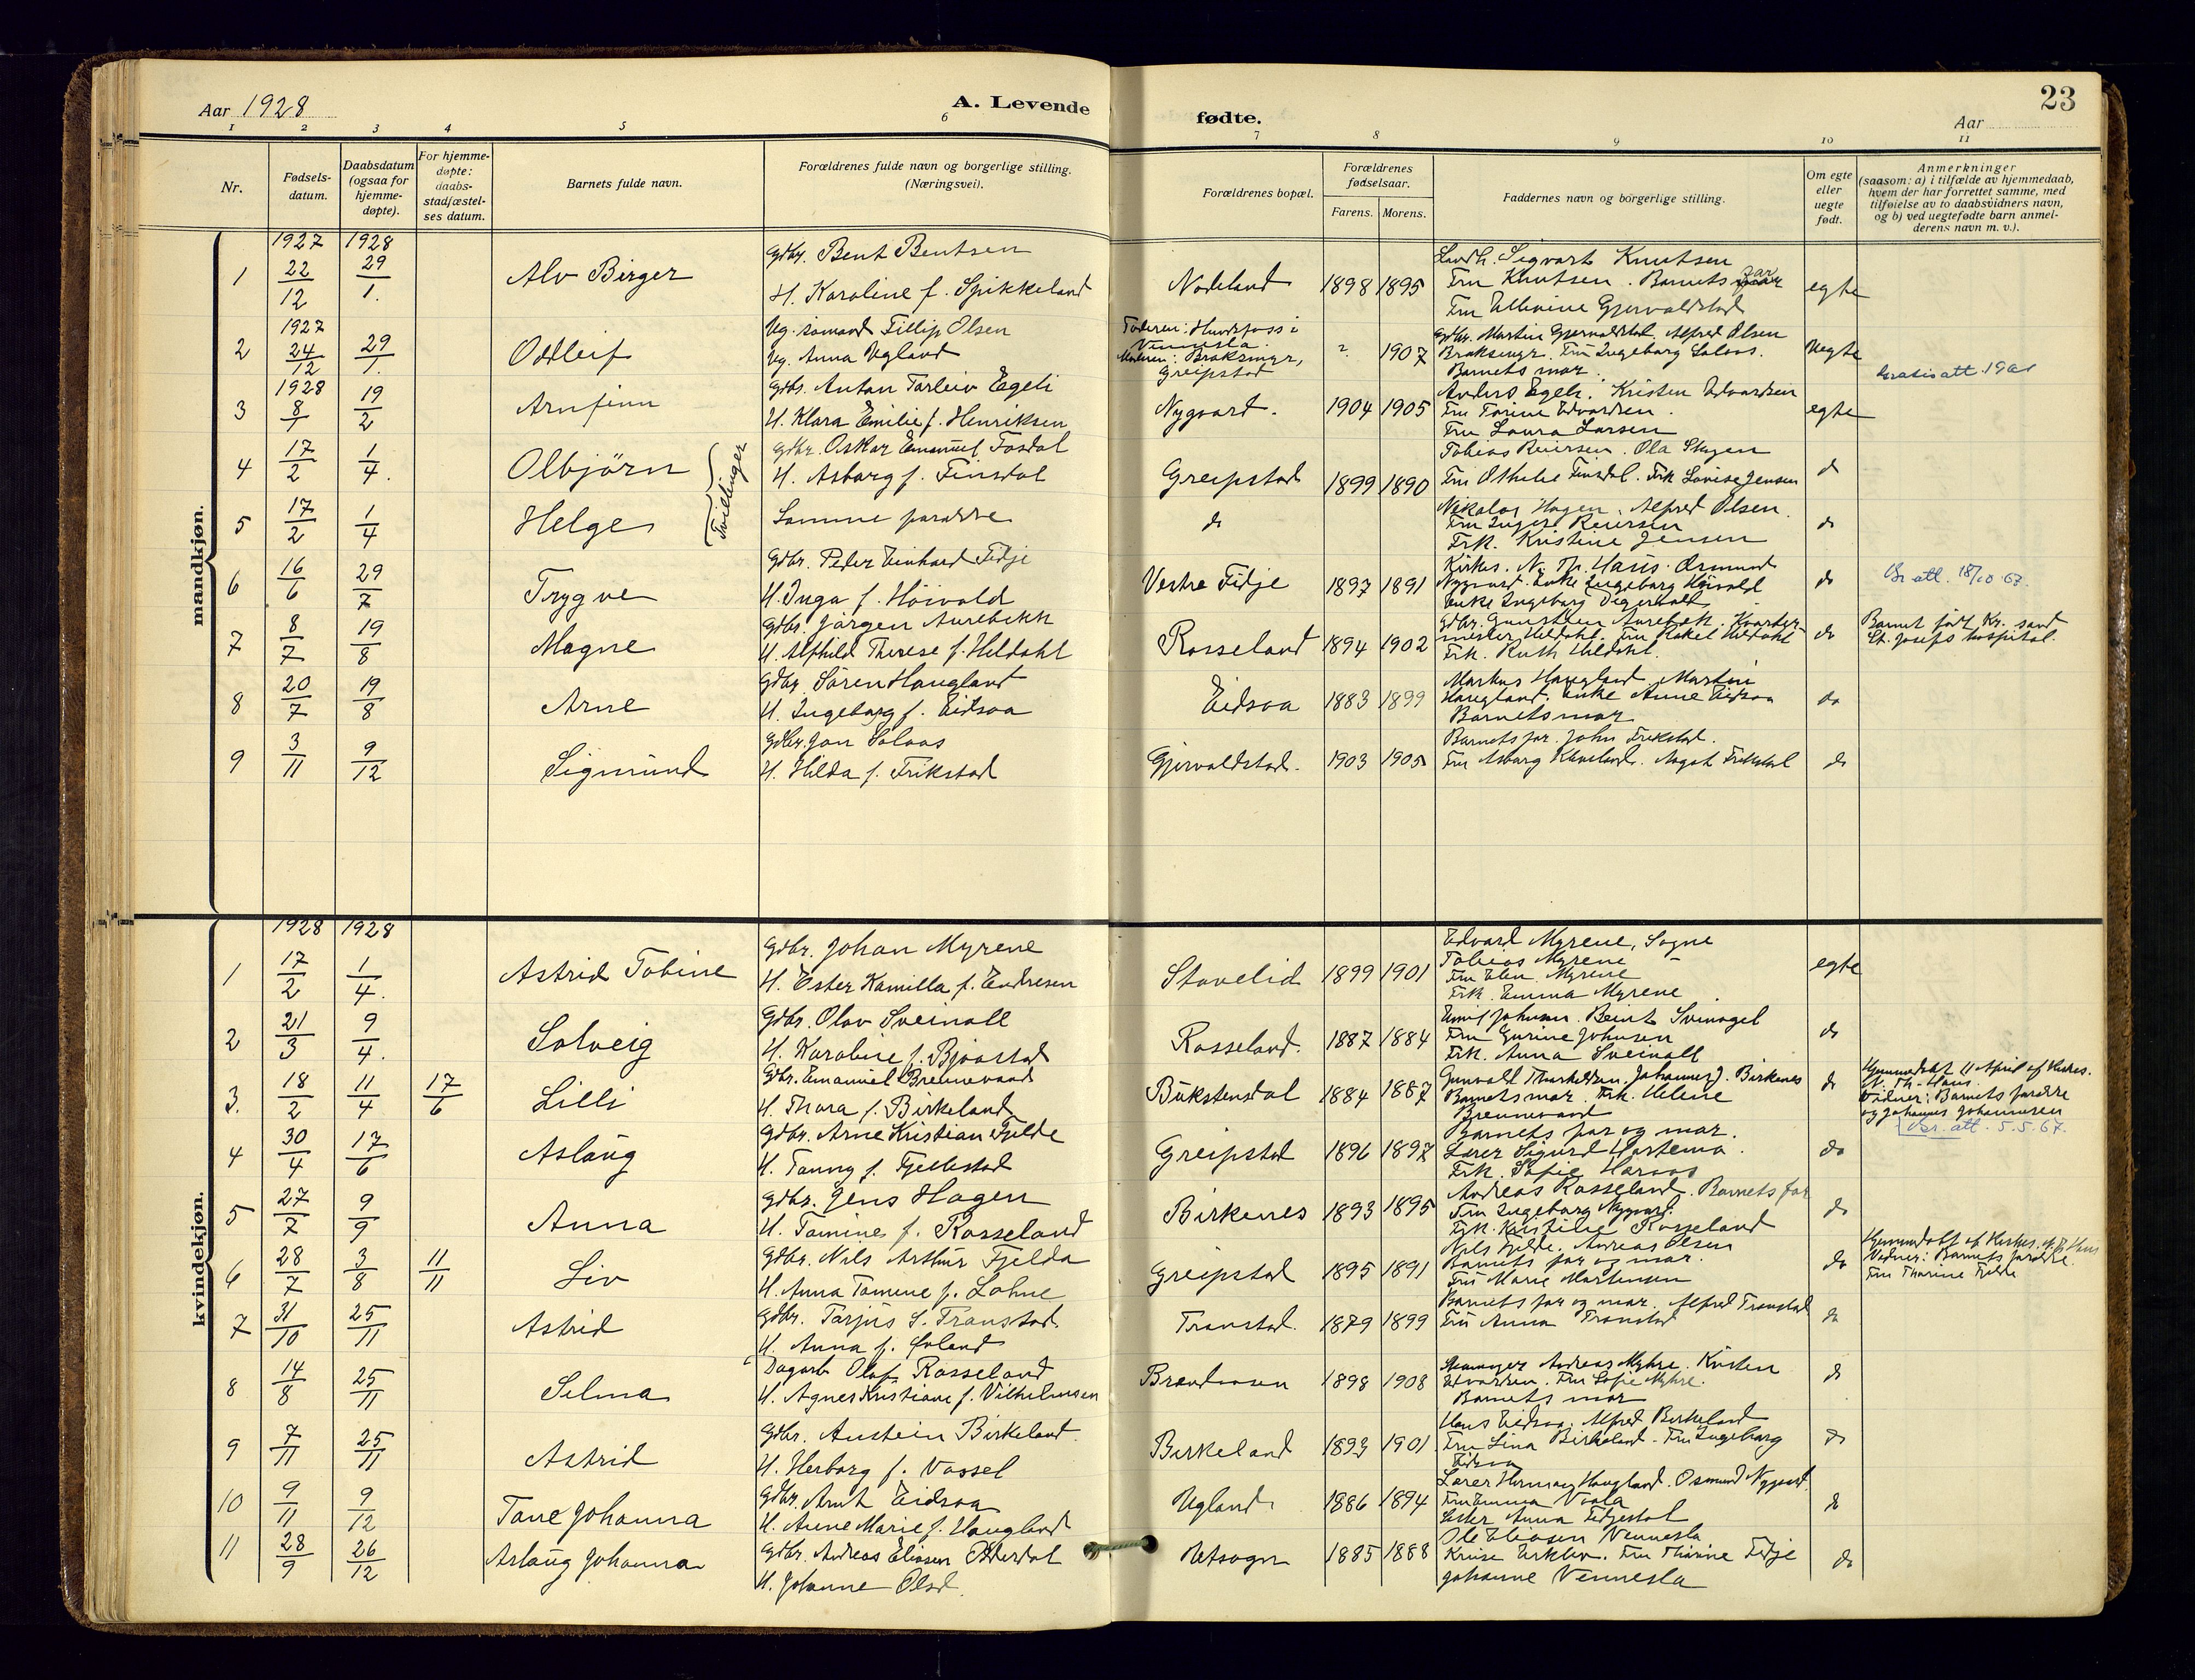 Aar 1928
A. Levende
fødte.
23
Aar
1 2 3 4 5 6 7 8 9 10 11
Nr.
Fødsels-
datum.
Daabsdatum
(ogsaa for
hjemme-
døpte).
For hjemme-
døpte:
daabs-
stadfæstel-
ses datum.
Barnets fulde navn.
Forældrenes fulde navn og borgerlige stilling.
(Næringsvei).
Forældrenes bopæl.
Forældrenes
fødselsaar.
Farens. Morens.
Faddernes navn og borgerlige stilling.
Om egte
eller
uegte
født.
Anmerkninger
(saasom: a) i tilfælde av hjemmedaab,
hvem der har forrettet samme, med
tilføielse av to daabsvidners navn,
og b) ved uegtefødte barn anmel-
derens navn m. v.).
mandkjøn.
1927 1928
1 22/12 29/1. Alv Birger
Gdbr. Bent Bentsen
H. Karoline f. Spikkeland
Nodeland 1898 1895
Sigvart Knutsen
Fru Knutsen. Barnets far
Fru Gjervoldstad
egte
1927
2 24/12 29/1. Oddleif
Ug. sömand Fillip Olsen
Ug. Anna Ugland
Faderen: Hundsfoss i
Vennesla.
Moderen: Broksmyr,
Greipstad
? 1907
Gdbr. Martin Gjervoldstad, Alfred Olsen
Broksmyr. Fru Ingeborg Solaas.
Barnets mor.
Uegte
1928
3 8/1 19/2 Arnfinn
Gdbr. Anton Tarleiv Egeli
H. Klara Emilie f. Henriksen
Nygaard. 1904 1905
Anders Egeli. Kristen Edvardsen
Fru Torine Edvardsen.
Fru Laura Larsen
egte
4 17/2 1/4. Olbjörn
Tvillinger
Gdbr. Oskar Emanuel Fosdal
H. Asborg f. Finsdal
Greipstad 1899 1890
Tobias Reiersen. Ola Skogen
Fru Othelie Finsdal. Frk Lovise Jensen
do
5 17/2 1/4 Helge
Samme forældre
do
Nikolai Hagen. Alfred Olsen.
Fru Inger Reiersen
Frk. Kristine Jensen
do
6 16/6 29/7 Trygve
Gdbr. Peder Einhard Fidje
H. Inga f. Höivold
Vestre Fidje 1897 1891
Kirkes. N. Th. Haus. Osmund
Nygaard. Enke Ingeborg Höivold
Enke Ingeborg
do
att. 18/10 63.
7 8/7 19/8 Magne
Gdbr. Jörgen Aurebekk
H. Alfhild Therese f. Heldahl
Rosseland 1894 1902
Gdbr. Gunstein Aurebæk. Kvarter-
mester Heldahl. Fru Rakel Heldahl
Frk. Ruth Heldahl.
do
Barnet født Kr. sand
St. Josefs hospital.
8 20/7 19/8 Arne
Gdbr Sören Haugland
H. Ingeborg f. Eidsaa
Eidsaa 1883 1899
Markus Haugland. Martin
Haugland. Enke Anne Eidsaa
Barnets mor
do
9 3/11 9/12 Sigmund
Gdbr. Jon Solaas
H. Hilda f. Frikstad
Gjervoldstad. 1903 1905
Barnets far. John Frikstad.
Fru Asborg Kleveland. Aagot Frikstad
do
kvindekjøn.
1928 1928
1 17/2 1/4. Astrid Tobine
Gdbr. Johan Myrene
H. Ester Kamilla f. Endresen
Stovelid 1899 1901
Edvard Myrene, Sogne
Tobias Myrene
Fru Elen Myrene
Frk. Emma Myrene.
egte
2 21/3 9/4. Solveig
Gdbr. Olav Sveinall
H. Karoline f. Bjorstad
Rosseland. 1887 1884
Emil Johnsen. Beint Sveinagel
Fru Gurine Johnsen
Frk. Anna Sveinall
do
3. 18/2 11/4 17/6 Lilli
Gdbr. Emanuel Brennevand
H. Thora f. Birkeland
Bukstensdal 1884 1887
Gunvald Thorkildsen. Johannes J. Birkenes
Barnets mor. Frk. Helene
Brennevand
do
Hjemmedøbt 11 April af Kirkes.
N. Th. Haus.
Vidner: Barnets forældre
og Johannes Johannesen
att. 5.5.67.
4 30/4 17/6 Aslaug
Gdbr. Arne Kristian Fjelde
H. Tanny f. Fjellestad
Greipstad 1896 1897
Barnets far og mor.
Lærer Sigurd Hortemo.
Frk. Sofie
do
5 27/7 9/9 Anna
Gdbr. Jens Hagen
H. Tomine f. Rosseland
Birkenes 1893 1895
Andreas Rosseland. Barnets far
Fru Ingeborg Nygaard.
Frk. Kristine Rosseland
do
6 28/7 3/8 11/11 Liv
Gdbr. Nils Arthur Fjelda
H. Anna Tomine f. Lohne
Greipstad 1895 1891
Nils Fjelde. Andreas Olsen
Barnets far og mor.
Fru Marie Mortensen
do
Hjemmedøbt af Kirkes. N. Th Haus
Vidner: Barnets forældre.
Fru Thorine Fjelde
7 31/10 25/11 Astrid
Gdbr. Tarjus S. Tronstad.
H. Anna f. Øvland
Tronstad. 1879 1899
Barnets far og mor. Alfred Tronstad
Fru Anna Tronstad
do
8 14/8 25/11 Selma
Dagarb Olaf Rosseland
H. Agnes Kristiane f. Vilhelmsen
Brandsasen 1898 1908
Andreas Myhre. Kristen
Edvardsen. Fru Sofie Myhre.
Barnets mor
do
9 7/11 25/11 Astrid
Gdbr. Austein Birkeland.
H. Herborg f. Vassel
Birkeland 1893 1901
Hans Eidsaa. Alfred Birkeland
Fru Lina Birkeland. Fru Ingeborg
Eidsaa
do
10 9/11 9/12 Tone Johanna
Gdbr. Arnt Eidsaa
H. Anne Marie f. Haugland
Ugland 1886 1894
Lærer Herman Haugland. Osmund Nygaard.
Fru Emma
Anna
do
11 28/9 26/12 Aslaug Johanna
Gdbr. Andreas Eliasen Odderdal
H. Johanne Olsd.
Utsogn 1885 1888
Ole Eliasen Vennesla
Fru Thorine Fidje
Johanne Vennesla
do